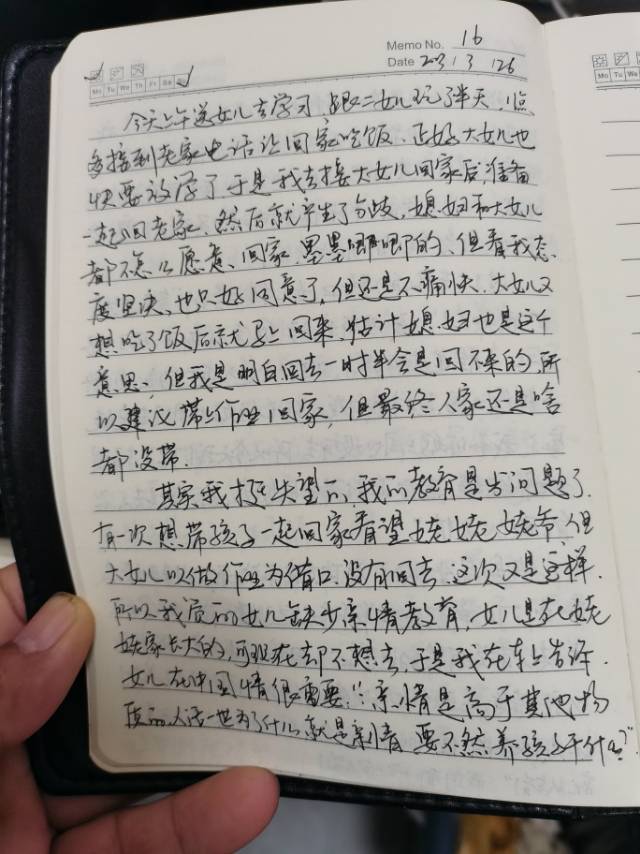 Memo No. 16
Mo Tu We Th Fr Sa Su
Date 2023 / 3 / 26
今天上午送女儿去学习,跟二女儿玩了半天,11点
多接到老家电话让回家吃饭.正好大女儿也
快要放学了于是我去接大女儿回家后,准备
一起回老家.然后就产生了分歧,媳妇和大女儿
都不怎么愿意回家,墨墨唧唧的.但看我态
度坚决,也只好同意了,但还是不痛快.大女儿又
想吃了饭后就马上回来,估计媳妇也是这个
意思,但我是明白回去一时半会是回不来的,所
以建议带上作业回家,但最终人家还是啥
都没带.
其实我挺失望的,我的教育是出问题了.
有一次想带孩子一起回家看望姥姥姥爷,但
大女儿以做作业为借口,没有回去.这次又是这样.
所以我说的女儿缺少亲情教育,女儿是在姥
姥家长大的,可现在却不想去,于是我在车上告诉
女儿在中国情很重要!亲情是高于其他物
质的,人活一世为了什么就是亲情,要不然养孩子干什么?"
Mo Tu We